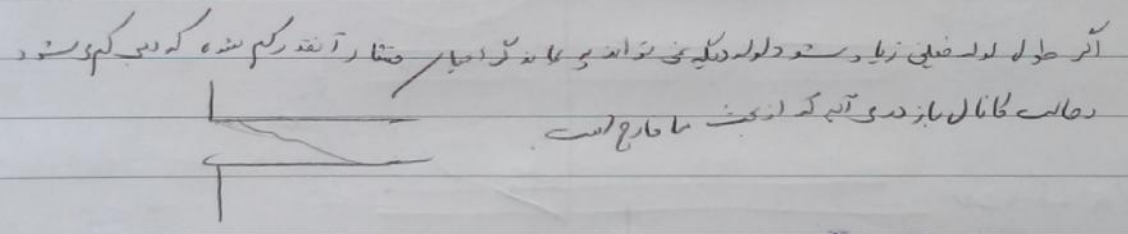 اگر طول لوله خیلی زیاد شود لوله دیگر نمی تواند پر بماند فشار آنقدر کم شده که دبی کم می شود
و حالت کانال باز در می آید که از بحث ما خارج است.